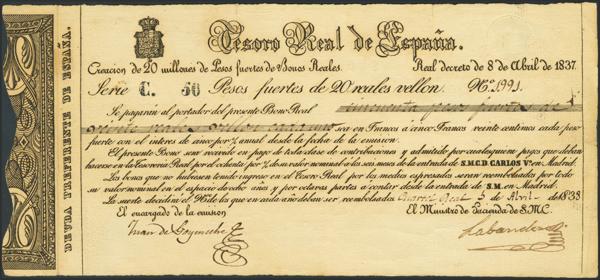 DEUDA PREFERENTE DE ESPAÑA.
Tesoro Real de España.
Creacion de 20 millones de Pesos fuertes de Bonos Reales. Real decreto de 8 de Abril de 1837
Serie C. 50 Pesos fuertes de 20 reales vellon. Nº 1991
Se pagarán al portador del presente Bono Real cincuenta pesos fuertes de á
veinte reales vellon cada uno sea en Francos a cinco Francos veinte centimos cada peso
fuerte con el interes de cinco p% anual desde la fecha de la emision.
El presente Bono será recivido en pago de toda clase de contribuciones y admitido por cualesquiera pagos que deban
hacerse en la tesoreria Real por el ochenta por % de su valor nominal á los seis meses de la entrada de S.M.C.D. CARLOS Vº. en Madrid.
Los bonos que no hubiesen tenido ingreso en el Tesoro Real por los medios espresados seran reembolsados por todo
su valor nominal en el espacio de ocho años y por octavas partes a contar desde la entrada de S.M. en Madrid.
La suerte decidirá el Nº de los que en cada año deban ser reembolsados Cuartel Real 5 de Abril de 1838
El encargado de la emision El Ministro de Hacienda de S.M.C.
Juan de Labandero